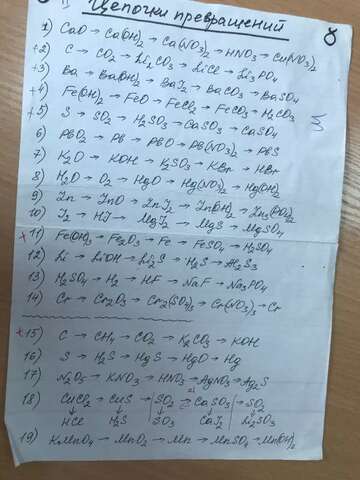 Цепочки превращений 8
1) CaO → Ca(OH)₂ → Ca(NO₃)₂ → HNO₃ → Cu(NO₃)₂
+2) C → CO₂ → Li₂CO₃ → LiCl → Li₃PO₄
+3) Ba → Ba(OH)₂ → BaI₂ → BaCO₃ → BaSO₄
+4) Fe(OH)₂ → FeO → FeCl₂ → FeCO₃ → H₂CO₃
+5) S → SO₂ → H₂SO₃ → CaSO₃ → CaSO₄
6) PbO₂ → Pb → PbO → Pb(NO₃)₂ → PbS
7) K₂O → KOH → K₂SO₃ → KBr → HBr
8) H₂O → O₂ → HgO → Hg(NO₃)₂ → Hg(OH)₂
9) Zn → ZnO → ZnI₂ → Zn(OH)₂ → Zn₃(PO₄)₂
10) I₂ → HI → MgI₂ → MgS → MgSO₄
x 11) Fe(OH)₃ → Fe₂O₃ → Fe → FeSO₄ → H₂SO₄
12) Li → LiOH → Li₂S → H₂S → Al₂S₃
13) H₂SO₄ → H₂ → HF → NaF → Na₃PO₄
14) Cr → Cr₂O₃ → Cr₂(SO₄)₃ → Cr(NO₃)₃ → Cr
x15) C → CH₄ → CO₂ → K₂CO₃ → KOH
16) S → H₂S → HgS → HgO → Hg
17) N₂O₅ → KNO₃ → HNO₃ → AgNO₃ → Ag₂S
18) CuCl₂ → CuS → SO₂ → CaSO₃ → SO₂
↓ ↓ ↓ ↓ ↓
HCl H₂S SO₃ CaI₂ Li₂SO₃
19) KMnO₄ → MnO₂ → Mn → MnSO₄ → Mn(OH)₂